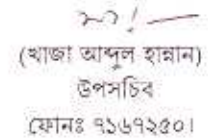 (খাজা আব্দুল হান্নান)
উপসচিব
ফোনঃ ৭১৬৭২৫০।